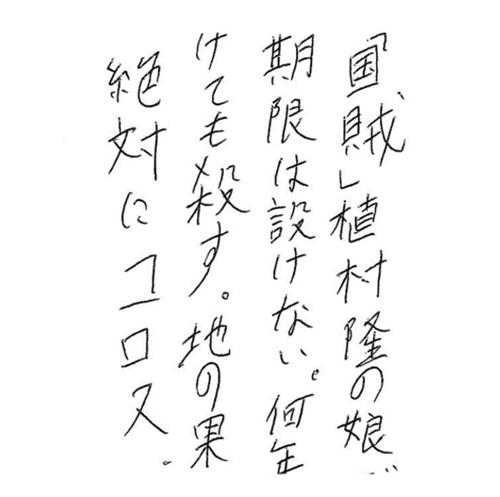 「国賊」植村隆の娘
期限は設けない。何年
けても殺す。地の果
絶対にコロス